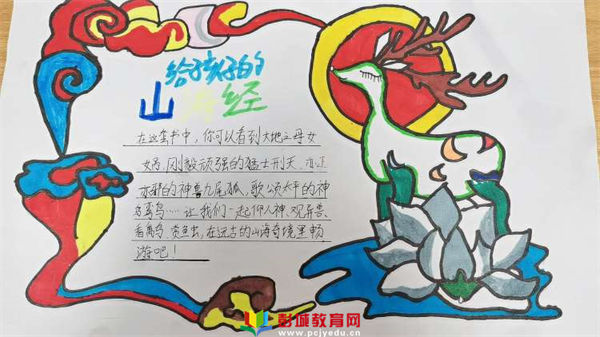 给孩子的
山海经
在这套书中，你可以看到大地之母女
娲、刚毅顽强的猛士刑天、亦正
亦邪的神兽九尾狐、歌颂太平的神
鸟鸾鸟……让我们一起仰人神、观异兽、
看离鸟、赏鱼虫，在远古的山海奇境里畅
游吧！
彭城教育网
www.pcjyedu.cn